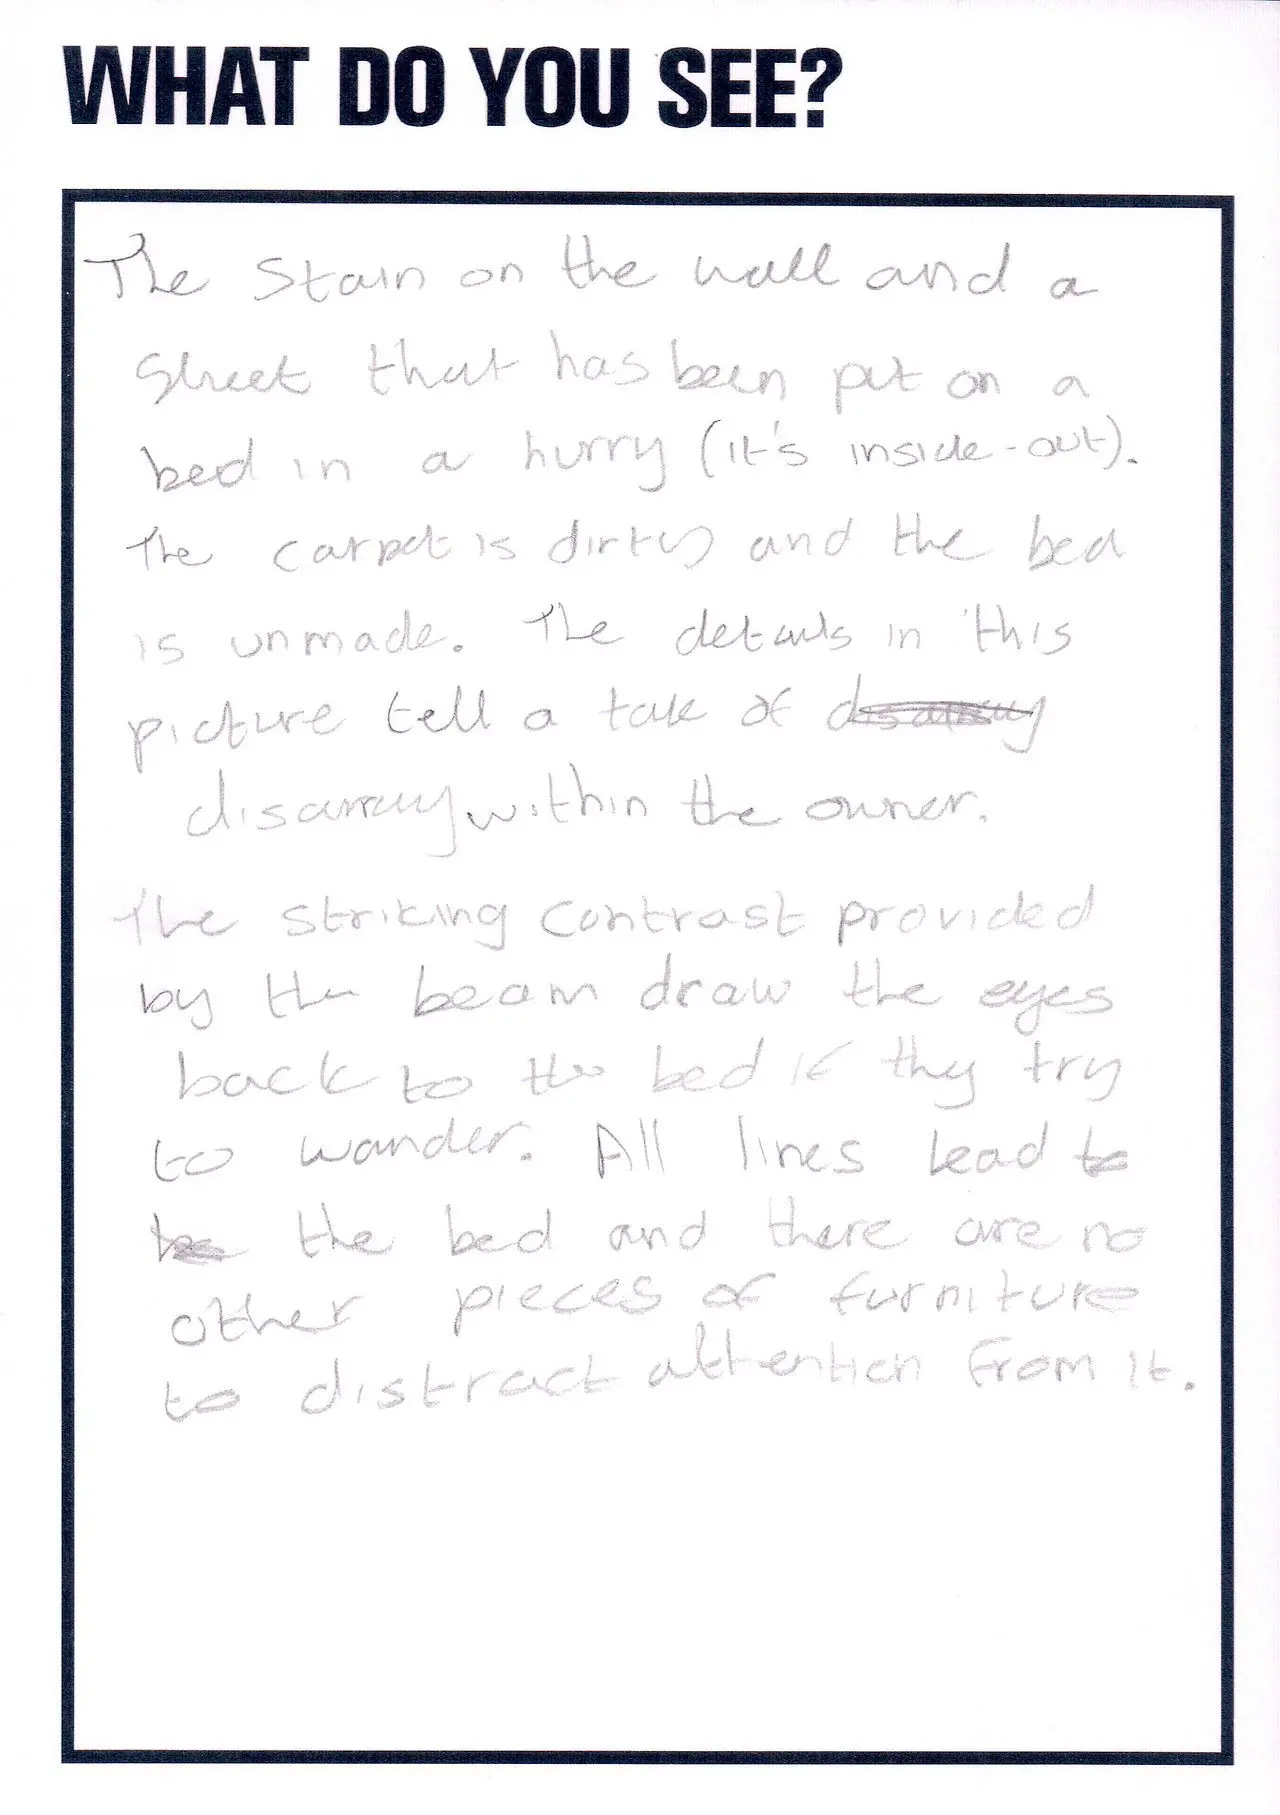 WHAT DO YOU SEE?
The stain on the wall and a
sheet that has been put on a
bed in a hurry (it's inside-out).
The carpet is dirty and the bed
is unmade. The details in this
picture tell a tale of disarray
disarray within the owner.
The striking contrast provided
by the beam draw the eyes
back to the bed if they try
to wander. All lines lead to
the bed and there are no
other pieces of furniture
to distract attention from it.